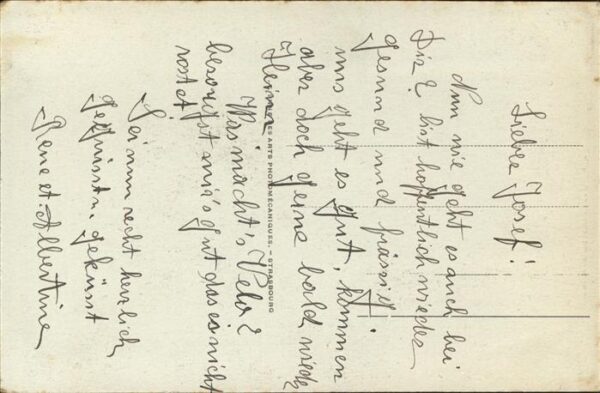 Lieber Josef!
Nun wie geht es auch bei
Dir? bist hoffentlich wieder
gesund und
uns geht es gut, kommen
aber doch gerne bald wieder
Heim.
Was macht's Velo?
besorgst mir's gut das es nicht
rostet!
Sei nun recht herzlich
gegrüsst u. geküsst
Rene et. Albertine
ARTS PHOTOMÉCANIQUES. — STRASBOURG